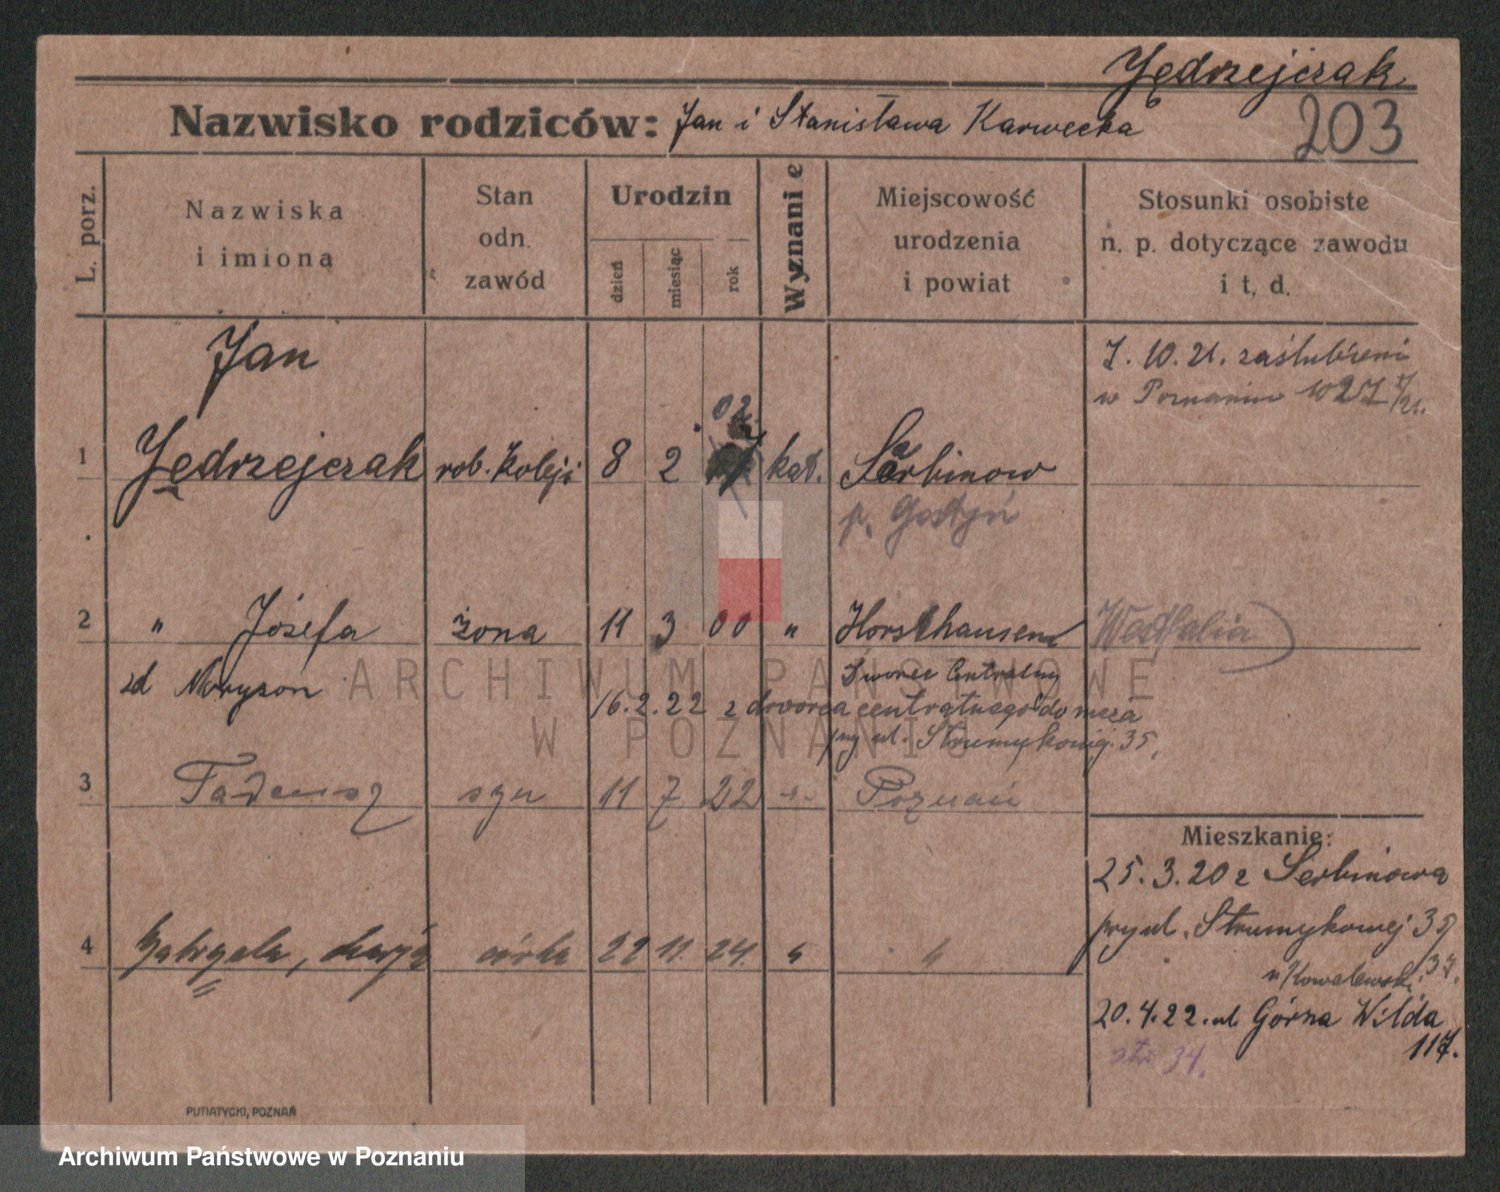 Jędrzejczak
Nazwisko rodziców: Jan i Stanisława Karwecka
203
L. porz.
Nazwiska
i imiona
Stan
odn.
zawód
Urodzin
dzień
miesiąc
rok
Wyznanie
Miejscowość
urodzenia
i powiat
Stosunki osobiste
n. p. dotyczące zawodu
i t. d.
Jan
7. 10. 21. zaślubieni
w Poznaniu
02
1 Jędrzejczak rob. kolej. 8 2 kat. Sarbinow
p. Gostyń
2 " Józefa żona 11 3 00 " Horsthausen Westfalia
zd Moryson
Dworzec Centralny
16.2.22 z dworca centralnego do męża
przy ul. Strumykowej. 35,
3 Tadeusz syn 11 7 22 " Poznań
Mieszkanie:
25.3.20 z Serbinowa
przy ul. Strumykowej 35
u Kowalewski 37.
4 córka 22 11 24 "
20.4.22. ul Górna Wilda
117.
34.
PUTIATYCKI, POZNAŃ
ARCHIWUM PAŃSTWOWE
W POZNANIU
Archiwum Państwowe w Poznaniu